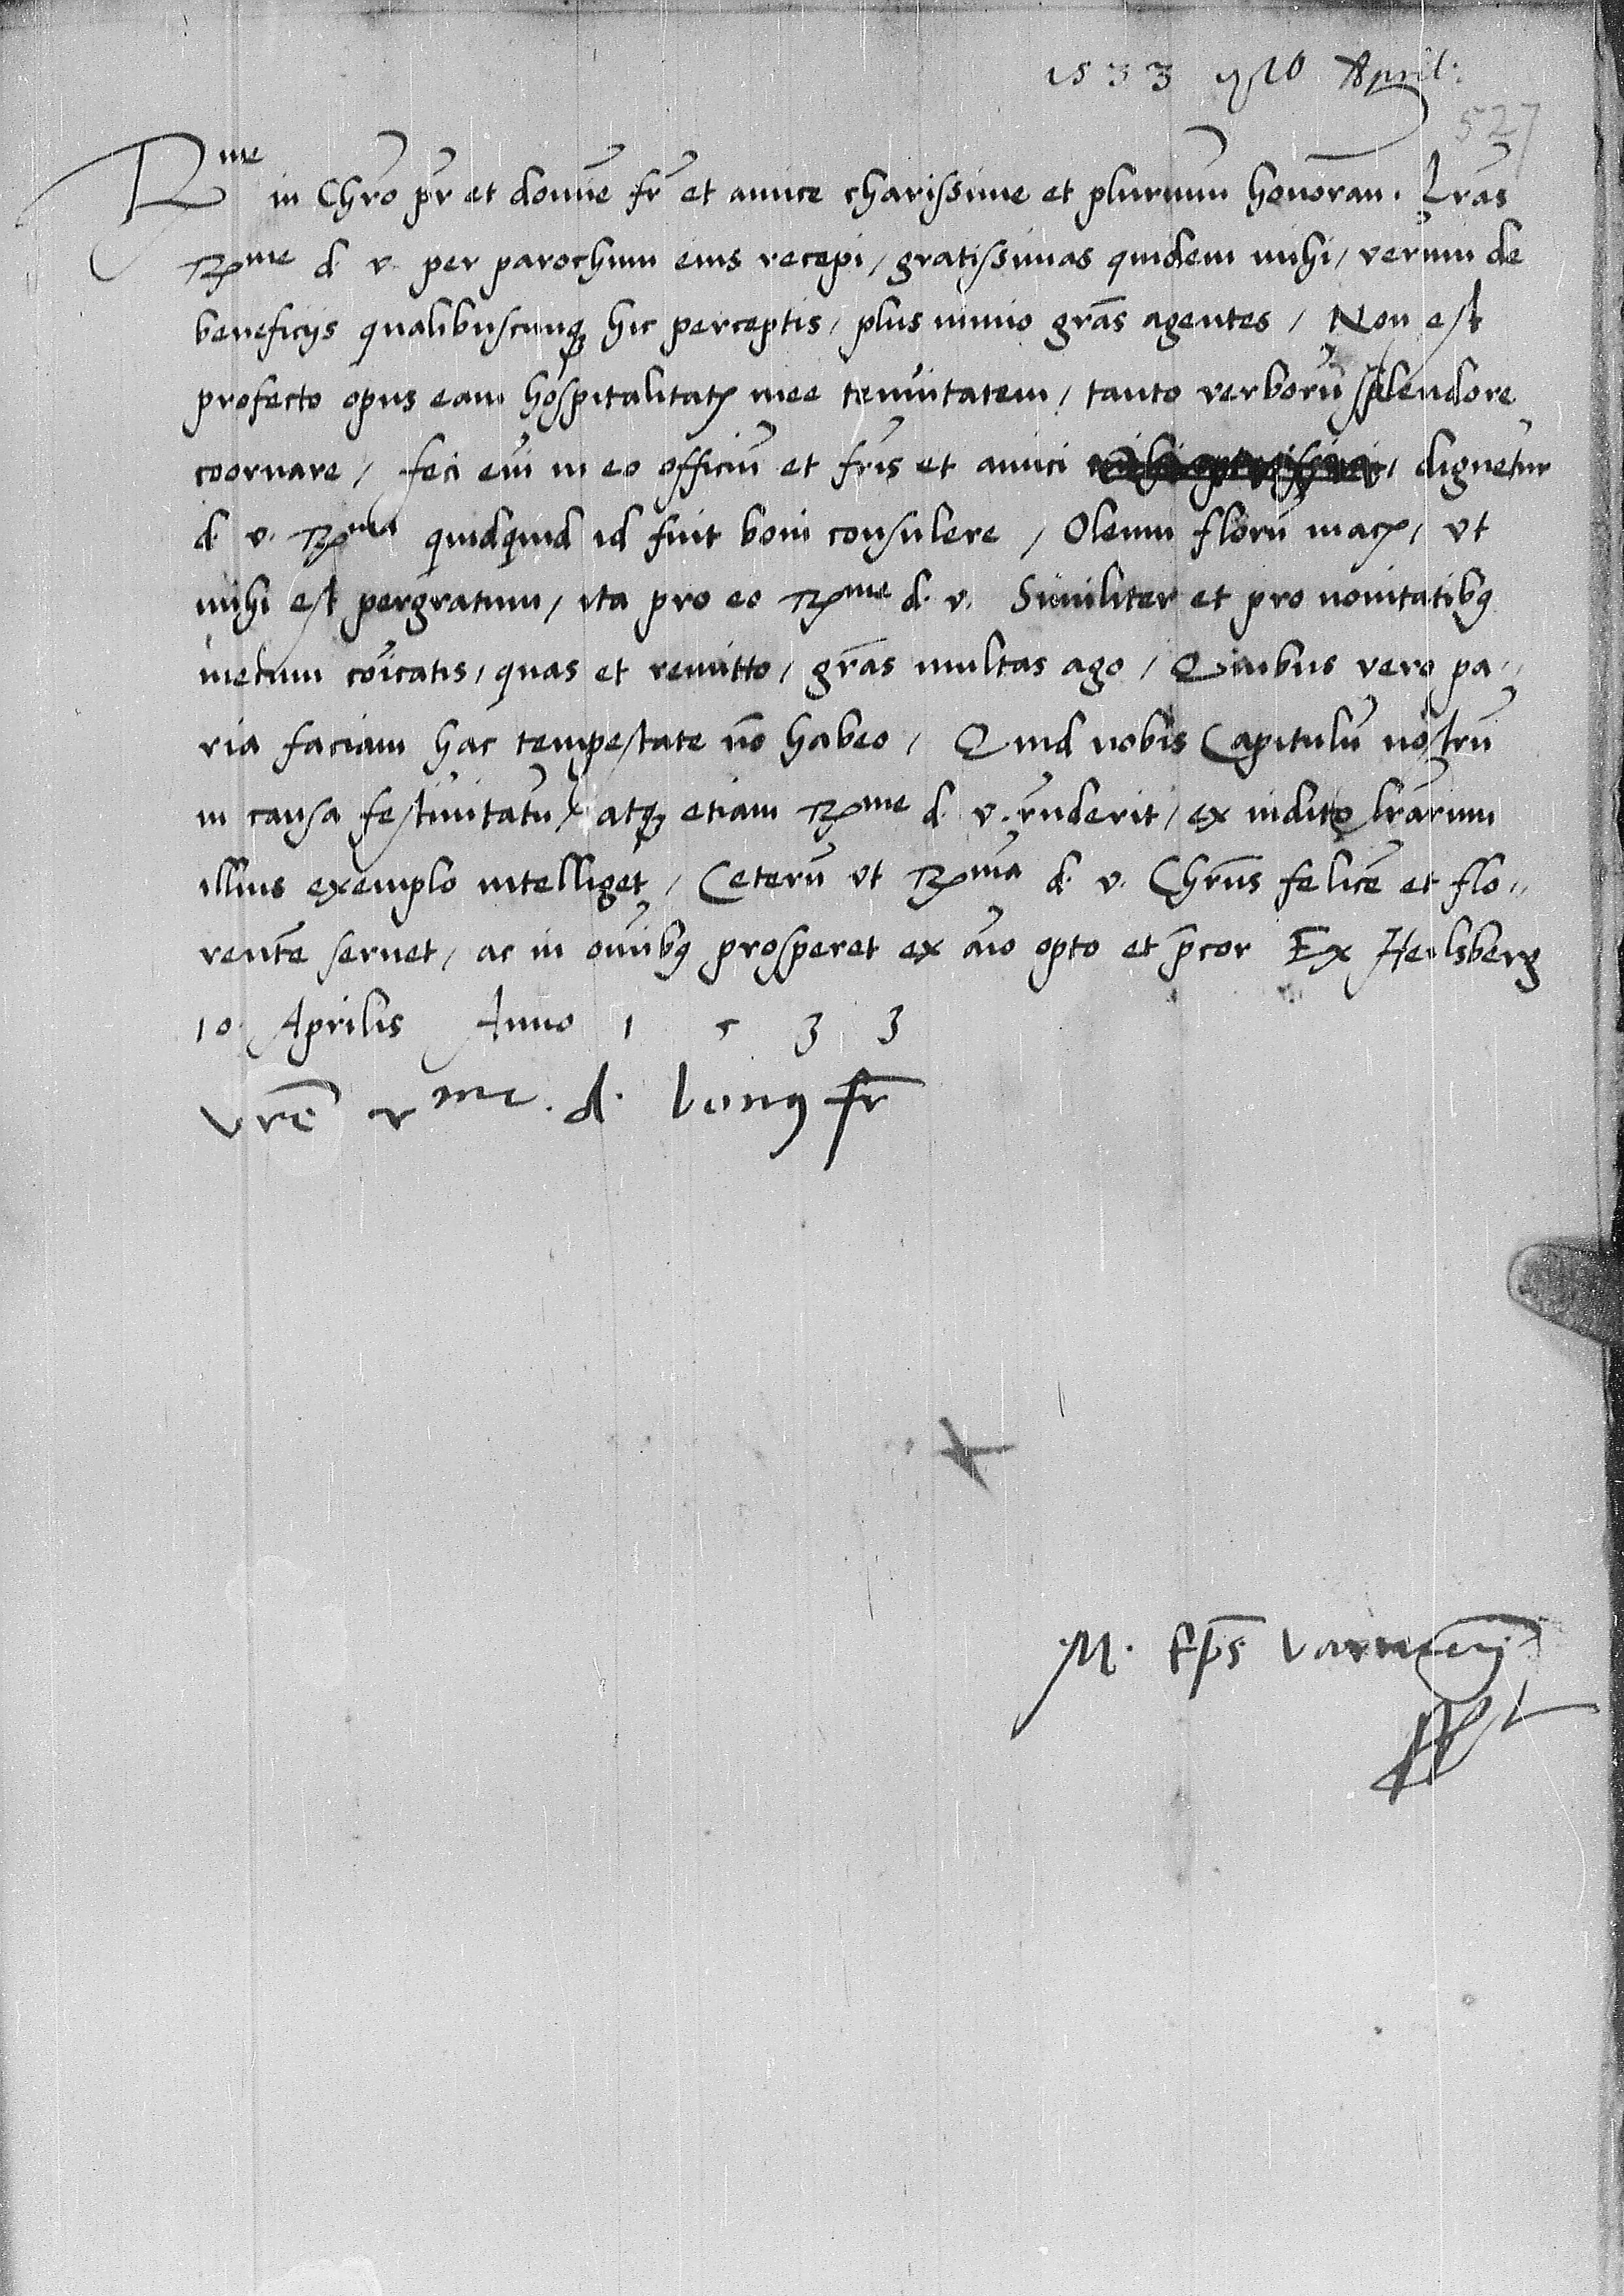 1533 10 April:
527
Rme in Chro pr et domine fr et amice charissime et plurimum honoran. Lras
Rme d. v. per parochum eius recepi, gratissimas quidem mihi, verum de
beneficijs qualibuscunq hic perceptis, plus nimio gras agentes, Non est
profecto opus eam hospitalitatis mee tenuitatem, tanto verborū splendore
coornare, feci eni in eo officiū et fris et amici dignetur
d. v. Rma quidquid id fuit boni consulere, Oleum florū macis, vt
mihi est pergratum, ita pro eo Rme d. v. Similiter et pro nouitatibq
mecum coicatis, quas et remitto, gras multas ago, Quibus vero pa„
ria faciam hac tempestate nō habeo, Quid nobis Capitulū nostrū
in causa festiuitatū, atq etiam Rme d. v. rnderit, ex indito lrarum
illius exemplo intelliget, Ceterū vt Rma d. v. Chrus felicē et flo„
rentē seruet, ac in oibq prosperet ex aio opto et pcor Ex Heilsberg
10. Aprilis Anno 1 5 3 3
Vre rme. d. bonq fr
M. Eps Varmien